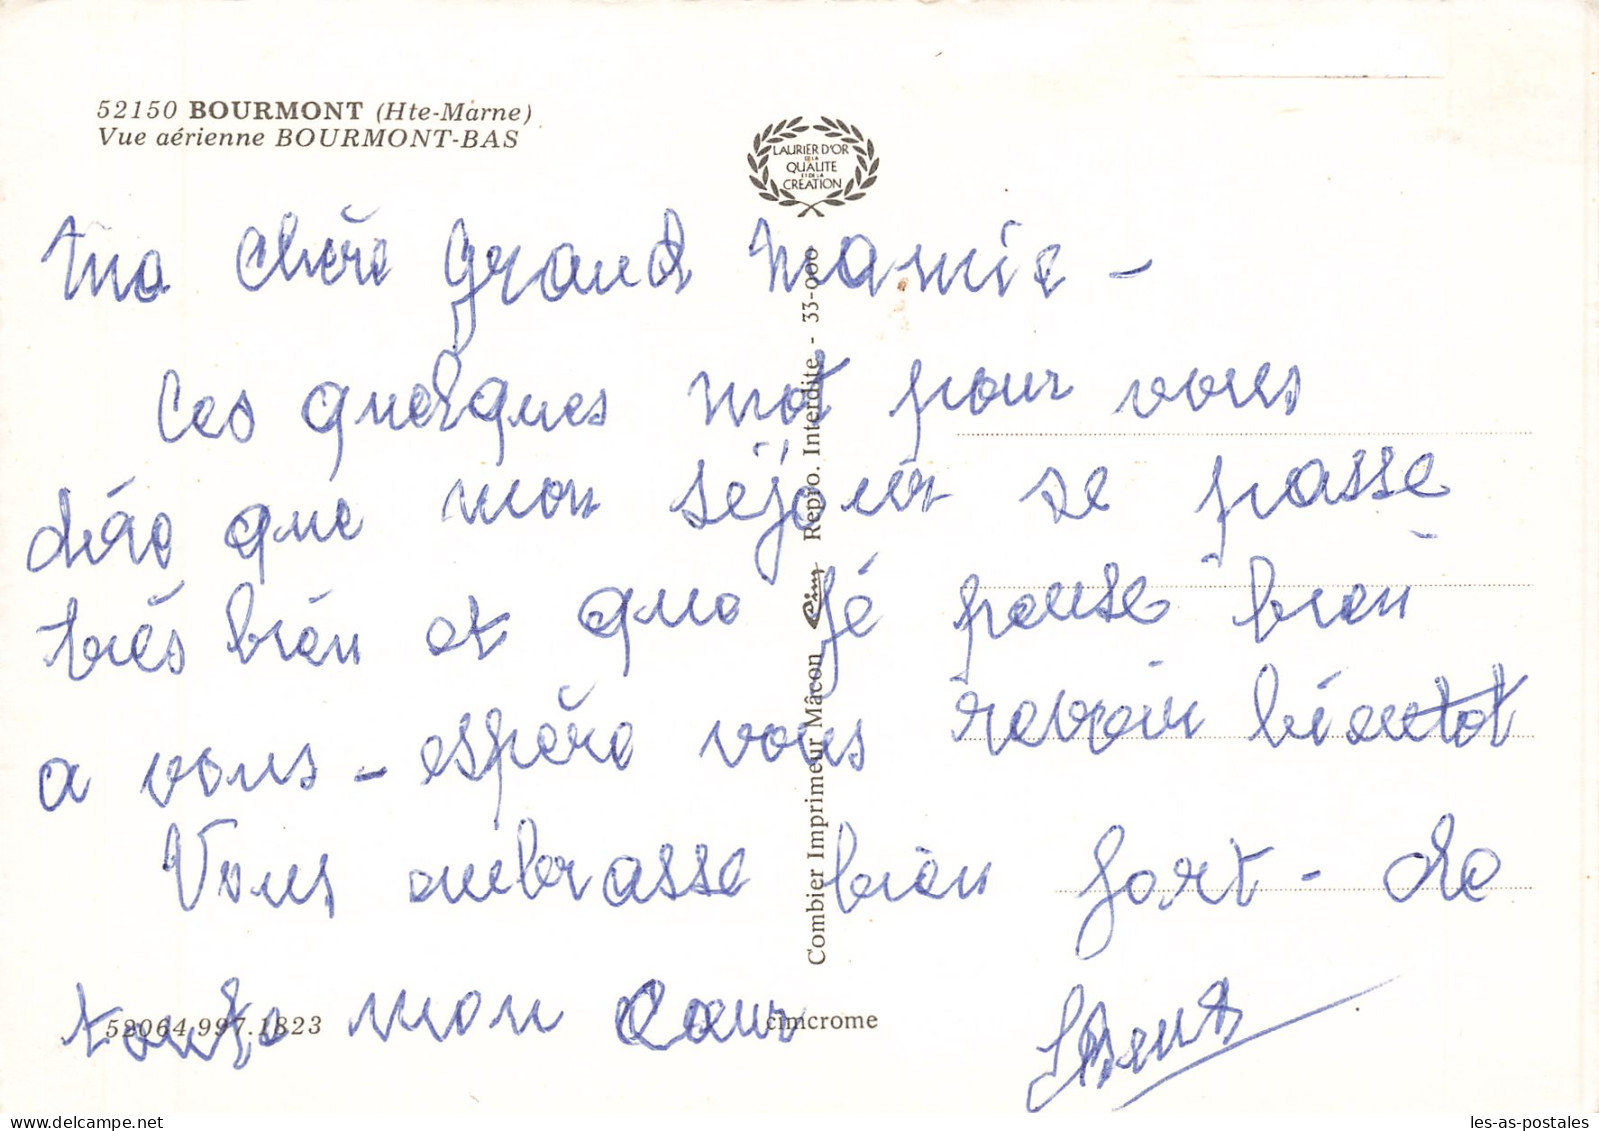 52150 BOURMONT (Hte-Marne)
Vue aérienne BOURMONT-BAS
LAURIER D'OR
DE LA
QUALITE
ET DE LA
CRÉATION
Ma chère grand mamie -
Ces quelques mot pour vous
dire que mon séjour se passe
très bien et que je pense bien
a vous - espère vous revoir bientot
Vous embrasse bien fort - de
toute mon Cœur
Combier Imprimeur Mâcon Cim Repro. Interdite - 33-000
52064.997.1823
cimcrome
les-as-postales